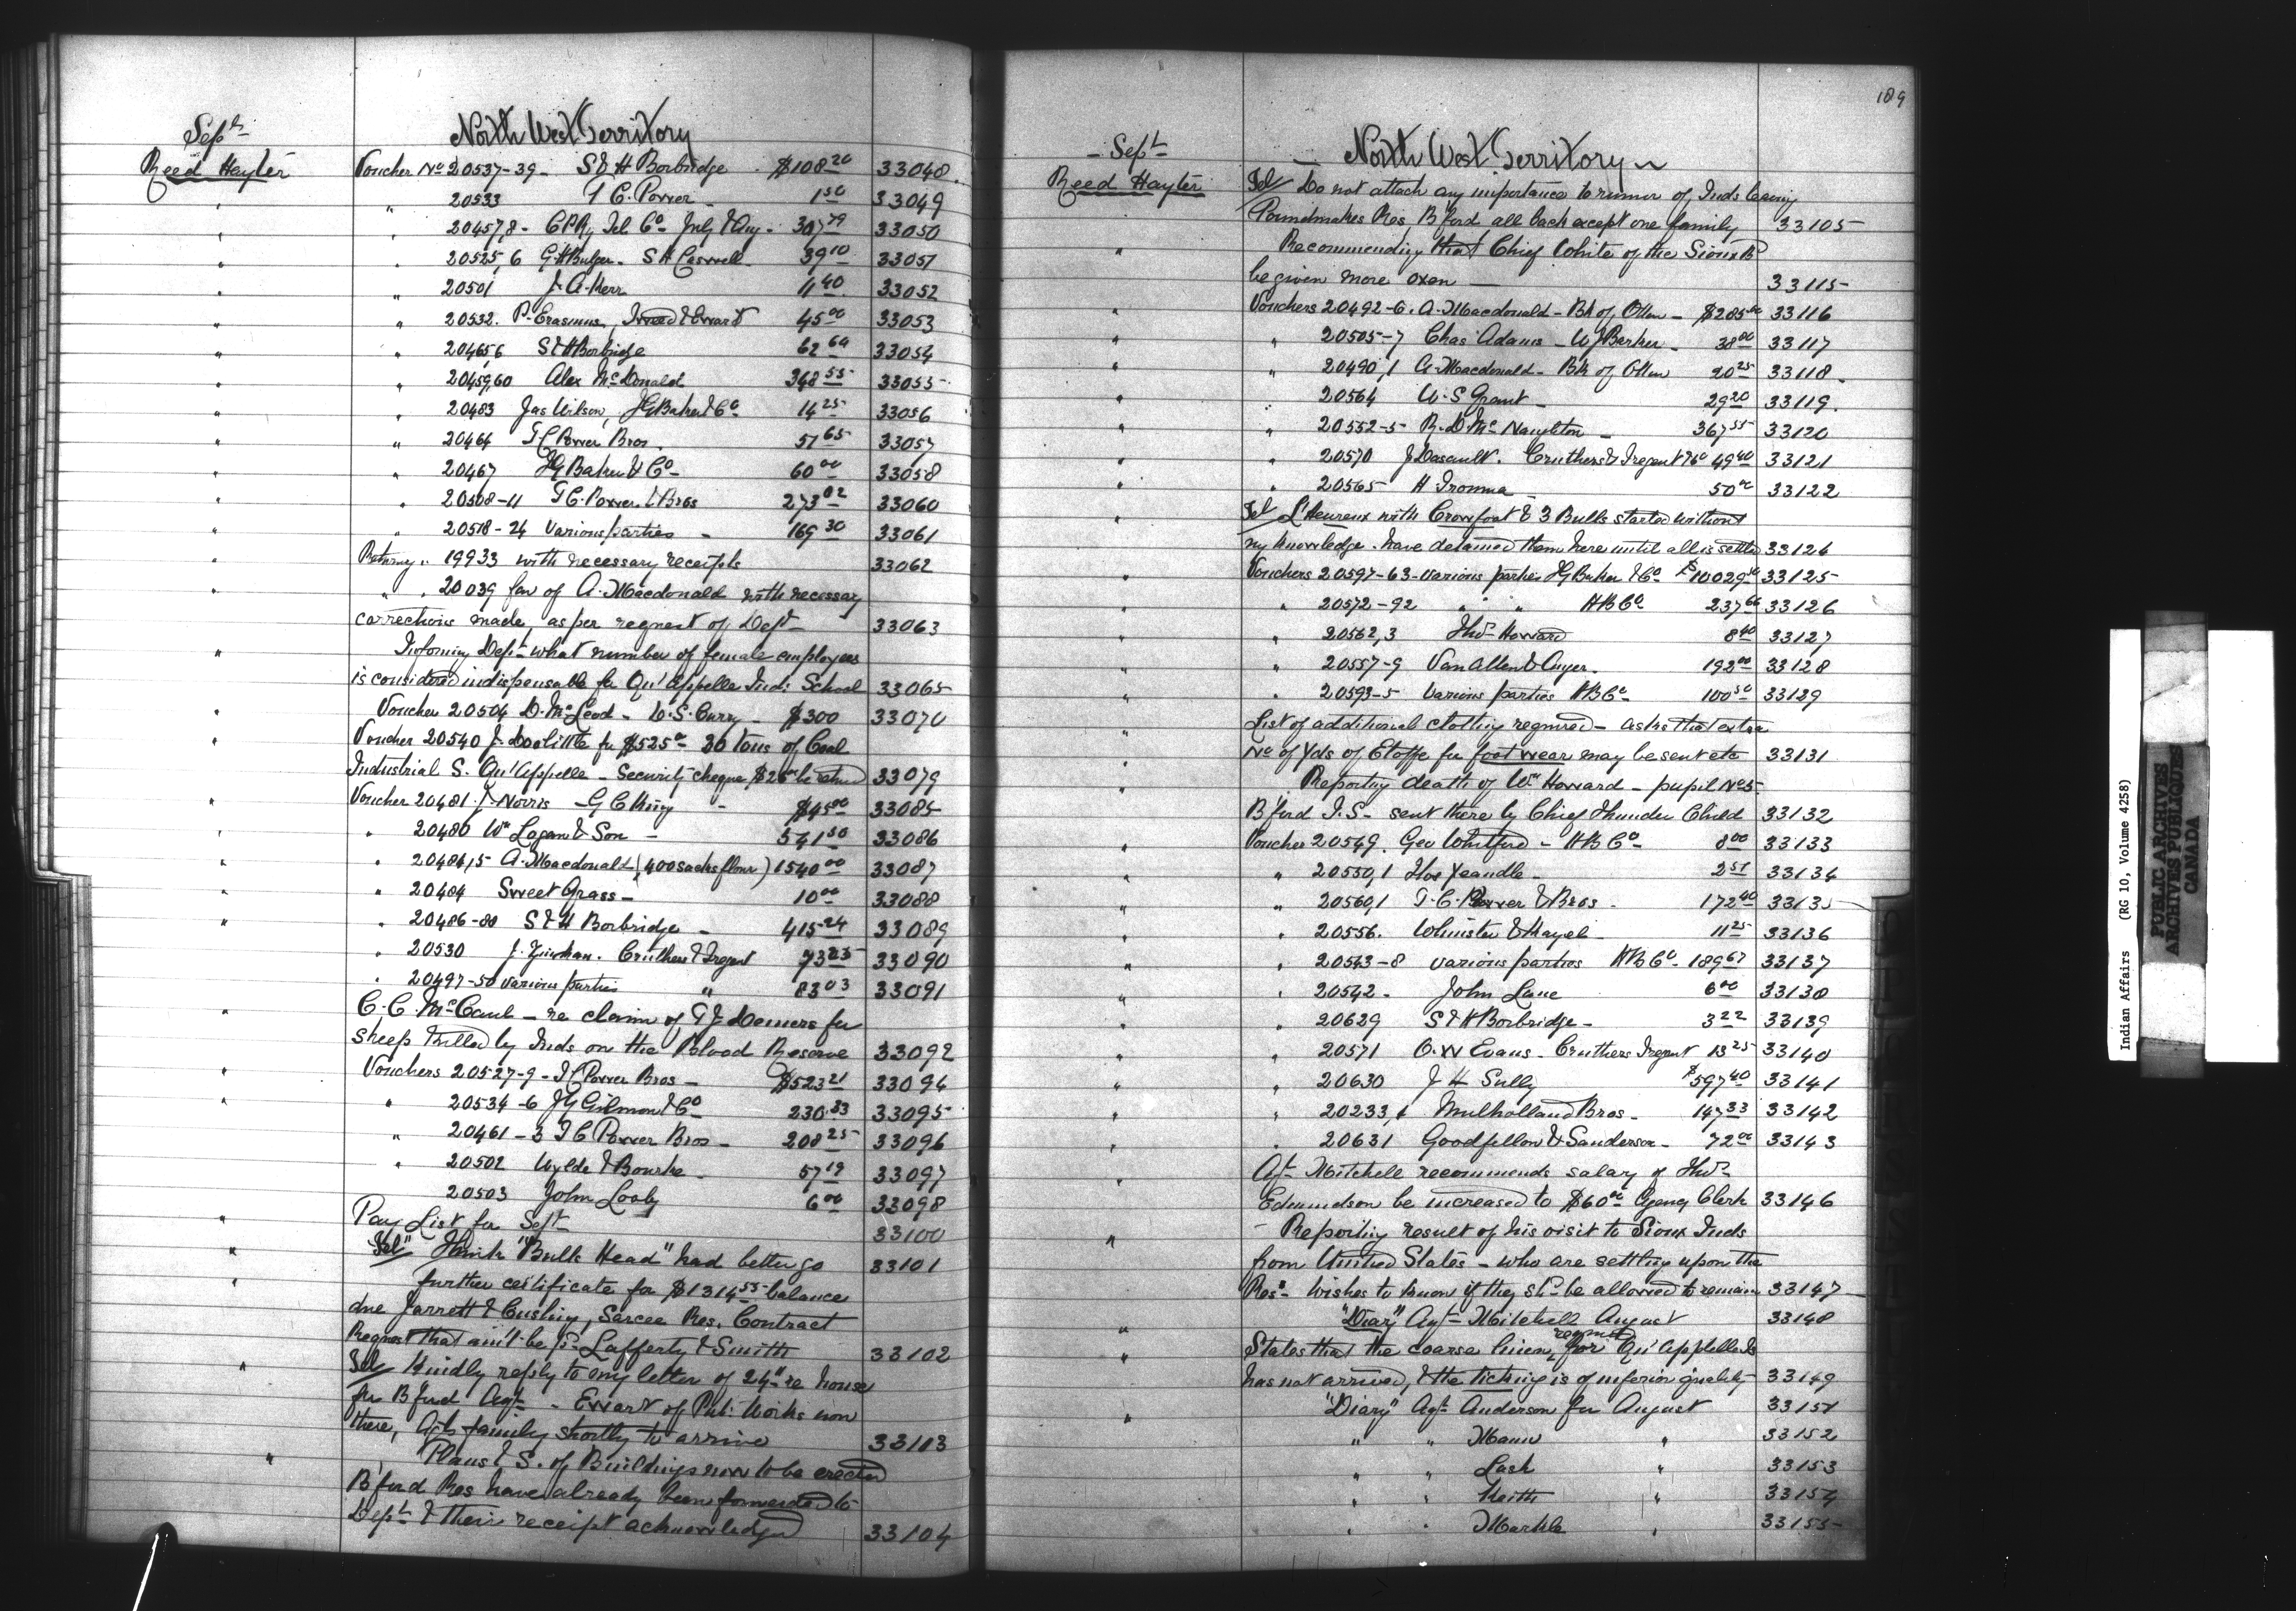 Sept
North West Territory
Reed Hayter Voucher No 20537-39 - S & H Borbridge $108 20 33048
" 20533 T C. Power - 1 50 33049
" 20457,8 - C P Ry Tel Co July & Aug - 307 79 33050
" 20525,6 G H Bulger - S H Caswell 39 10 33051
" 20501 J. A. Kerr 11 40 33052
" 20532. P. Erasmus, Tweed & Ewart 45 00 33053
" 20465,6 S & H Borbridge 62 60 33054
" 20459,60 Alex McDonald 348 55 33055
" 20483 Jas Wilson, J G Baker & Co 14 25 33056
" 20464 T C Power Bros 51 65 33057
" 20467 J G Baker & Co - 60 00 33058
" 20508-11 T C. Power & Bros 273 02 33060
" 20518-24 Various parties - 169 30 33061
Returng " 19933 with necessary receipts 33062
" " 20039 fav of A. Macdonald with necessary
corrections made, as per request of Dept - 33063
" Informing Dept what number of female employees
is considered indispensable for Qu'Appelle Ind: School 33065
" Voucher 20504 D. McLeod - W. S. Curry - $300 33070
" Voucher 20540 J. Doolittle for $525 00 30 tons of Coal
Industrial S. Qu'Appelle - Security cheque $25 00 be retnd 33079
" Voucher 20481 J. Norris - G C King - $45 00 33085
" 20480 Wm Logan & Son - 541 50 33086
" 20484,5 A. Macdonald (400 sacks flour) 1540 00 33087
" 20484 Sweet Grass - 10 00 33088
" 20486-88 S & H Borbridge - 415 24 33089
" 20530 J. Carruthers & Tregent 73 25 33090
" 20497-50 various parties " 83 03 33091
" C. C. McCaul - re claim of T J Demers for
sheep killed by Inds on the Blood Reserve 33092
" Vouchers 20527-9 - T C Power Bros - $523 21 33094
" 20534-6 J G Gilmour & Co 230 33 33095
" 20461-3 T C Power Bros - 208 25 33096
" 20502 Wylde & Bourke - 57 19 33097
20503 John Looby 6 00 33098
" Pay List for Sept - 33100
" "Tel" Think "Bulls Head" had better go 33101
" further certificate for $1314 55 balance
due Jarrett & Cushing, Sarcee Res. Contract
Request that am't be pd Lafferty & Smith 33102
" Tel Kindly reply to my letter of 24" re house
for B'ford Agt - Ewart of Pub: Works now
there, Agts family shortly to arrive 33103
" Plans & S. of Buildings now to be erected
B'ford Res have already been forwarded to
Dept & their receipt acknowledged 33104
189
Sept
North West Territory
Reed Hayter Tel Do not attach any importance to rumor of Inds leaving
Poundmakers Res. B'ford all back except one family 33105
" Recommending that Chief White of the Sioux
be given more oxen - 33115
" Vouchers 20492-6. A. Macdonald - Bk of Ottwa - $285 00 33116
" 20505-7 Chas Adams - W J Barker - 38 00 33117
" 20490,1 A. Macdonald - Bk of Ottwa 20 25 33118
" 20564 W. S Grant - 29 20 33119
" 20552-5 R. D McNaughton - 367 55 33120
" 20570 J Dasault. Carruthers & Tregent 49 40 33121
" 20565 H Ironma 50 00 33122
" Tel L'Heureux with Crowfoot & 3 Bulls started without
my knowledge - have detained them here until all is settld 33124
" Vouchers 20597-63 - various parties J G Baker & Co $10029 33125
" 20572-92 " " H B Co 237 66 33126
" 20562,3 Thos Howard 8 40 33127
" 20557-9 Van Allen & Auger. 192 00 33128
" 20593-5 Various parties H B Co 100 50 33129
" List of additional clothing required - asks that extra
No of Yds of Etoffe for foot wear may be sent etc 33131
" Reporting death of Wm Howard - pupil No 5.
B'ford I. S - sent there by Chief Thunder Child 33132
" Voucher 20549. Geo Whitford - H B Co - 8 00 33133
" 20550,1 Hos Yeandle - 2 51 33134
" 20560,1 T. C. Power & Bros - 172 40 33135
" 20556. Whinster & Hayel - 11 25 33136
" 20543-8 various parties H B Co - 189 67 33137
" 20542 - John Lane 6 00 33138
" 20629 S & H Borbridge - 3 22 33139
" 20571 O. W Evans - Carruthers Tregent 13 25 33140
" 20630 J H Sully $597 40 33141
" 20233,4 Mulholland Bros - 147 33 33142
" 20631 Goodfellow & Sanderson - 72 00 33143
" Agt Mitchell recommends salary of Thos
Edmundson be increased to $60 00 Agency Clerk 33146
" - Reporting result of his visit to Sioux Inds
from United States - who are settling upon the
Res - wishes to know if they shd be allowed to remain 33147
" "Diary" Agt Mitchell August 33148
" States that the coarse linen required for Qu'Appelle I S
has not arrived, & the ticking is of inferior quality 33149
" "Diary" Agt Anderson for August 33151
" " Mann " 33152
" " Lash " 33153
" " Keith " 33154
" " Markle " 33155
Indian Affairs (RG 10, Volume 4258)
PUBLIC ARCHIVES
ARCHIVES PUBLIQUES
CANADA